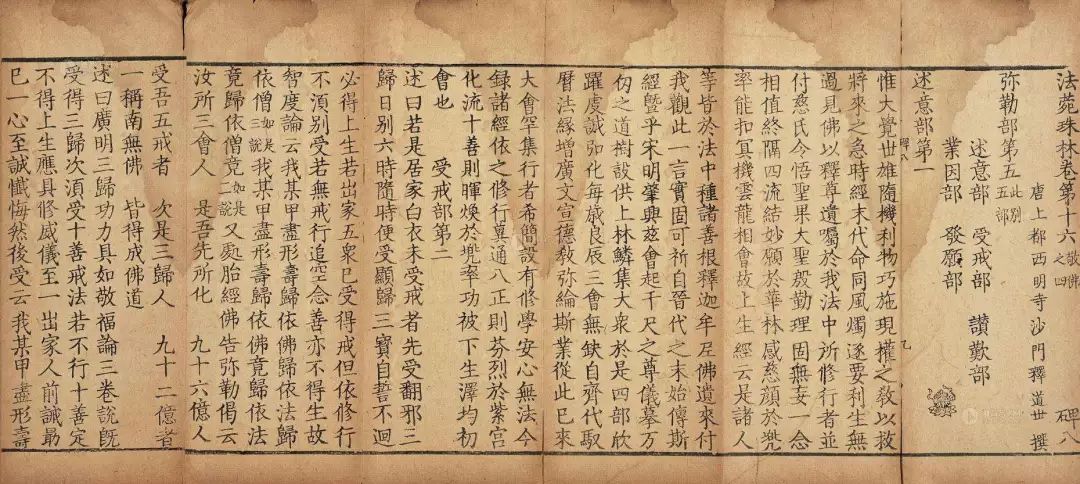 法苑珠林卷第十六 敬佛之四 碑八
唐上都西明寺沙門釋道世 撰
弥勒部第五 此別五部
述意部 受戒部 讃歎部
業因部 發願部
述意部第一
惟大覺世雄隨機利物巧施現權之教以救
將來之急時經末代命同風燭逐要利生無
過見佛以釋尊遺囑於我法中所修行者並
付慈氏今悟聖果大聖慇勤理固無妄一念
相值終隔四流結妙願於華林感慈顔於兜
率能扣冥機雲龍相會故上生經云是諸人
等皆於法中種諸善根釋迦牟尼佛遺來付
我觀此一言實固可祈自晉代之末始傳斯
經曁乎宋明肇興兹會起千尺之尊儀摹万
仞之道樹設供上林鱗集大衆於是四部欣
躍虔誠弘化每歲良辰三會無缺自齊代馭
曆法緣增廣文宣德教弥綸斯業從此已來
大會罕集行者希簡設有修學安心無法今
録諸經依之修行冥通八正則芬烈於紫宫
化流十善則暉煥於兜率功被下生澤均初
會也 受戒部第二
述曰若是居家白衣未受戒者先受翻邪三
歸日别六時隨時便受顯歸三寶自誓不迴
必得上生若出家五衆已受得戒但依修行
不湏别受若無戒行追空念善亦不得生故
智度論云我某甲盡形壽歸依佛歸依法歸
依僧 如是三說 我某甲盡形壽歸依佛竟歸依法
竟歸依僧竟 如是二說 又處胎經佛告弥勒偈云
汝所三會人 是吾先所化 九十六億人
受吾五戒者 次是三歸人 九十二億者
一稱南無佛 皆得成佛道
述曰廣明三歸功力具如敬福論三卷說旣
受得三歸次須受十善戒法若不行十善定
不得上生應具修威儀至一出家人前誠最
已一心至誠懺悔然後受云我某甲盡形壽